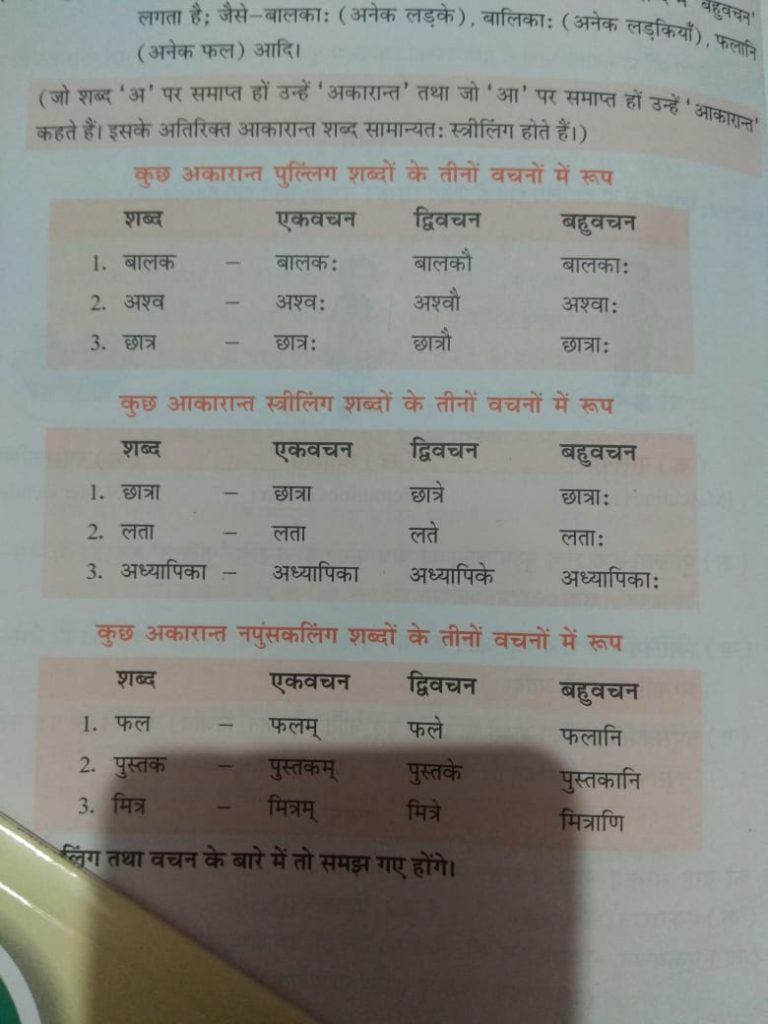 बहुवचन'
लगता है; जैसे–बालकाः (अनेक लड़के), बालिकाः (अनेक लड़कियाँ), फलानि
(अनेक फल) आदि।
(जो शब्द 'अ' पर समाप्त हों उन्हें 'अकारान्त' तथा जो 'आ' पर समाप्त हों उन्हें 'आकारान्त'
कहते हैं। इसके अतिरिक्त आकारान्त शब्द सामान्यतः स्त्रीलिंग होते हैं।)
कुछ अकारान्त पुल्लिंग शब्दों के तीनों वचनों में रूप
शब्द एकवचन द्विवचन बहुवचन
1. बालक – बालकः बालकौ बालकाः
2. अश्व – अश्वः अश्वौ अश्वाः
3. छात्र – छात्रः छात्रौ छात्राः
कुछ आकारान्त स्त्रीलिंग शब्दों के तीनों वचनों में रूप
शब्द एकवचन द्विवचन बहुवचन
1. छात्रा – छात्रा छात्रे छात्राः
2. लता – लता लते लताः
3. अध्यापिका – अध्यापिका अध्यापिके अध्यापिकाः
कुछ अकारान्त नपुंसकलिंग शब्दों के तीनों वचनों में रूप
शब्द एकवचन द्विवचन बहुवचन
1. फल – फलम् फले फलानि
2. पुस्तक – पुस्तकम् पुस्तके पुस्तकानि
3. मित्र – मित्रम् मित्रे मित्राणि
लिंग तथा वचन के बारे में तो समझ गए होंगे।